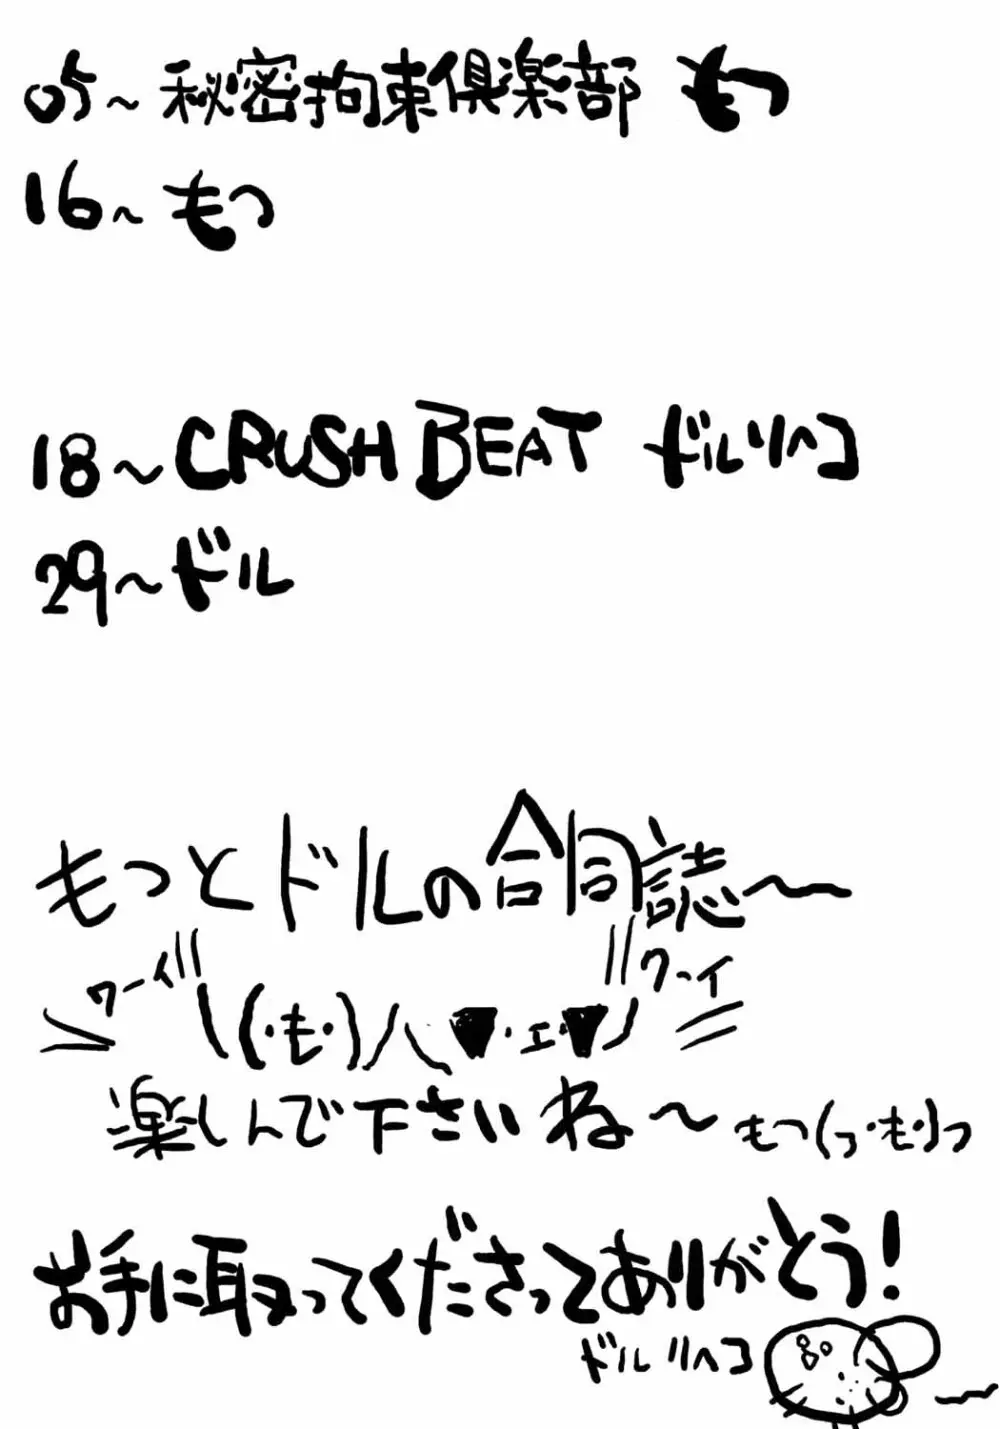 05~ 秘密拘束倶楽部 もつ
16~ もつ
18~ CRUSH BEAT ドルリヘコ
29~ ドル
もつとドルの合同誌~
ワーイ ワーイ
\(・も・)人▼・ェ・▼ノ
楽しんで下さいね~ もつ(っ・も・)っ
お手に取ってくださってありがとう!
ドルリヘコ